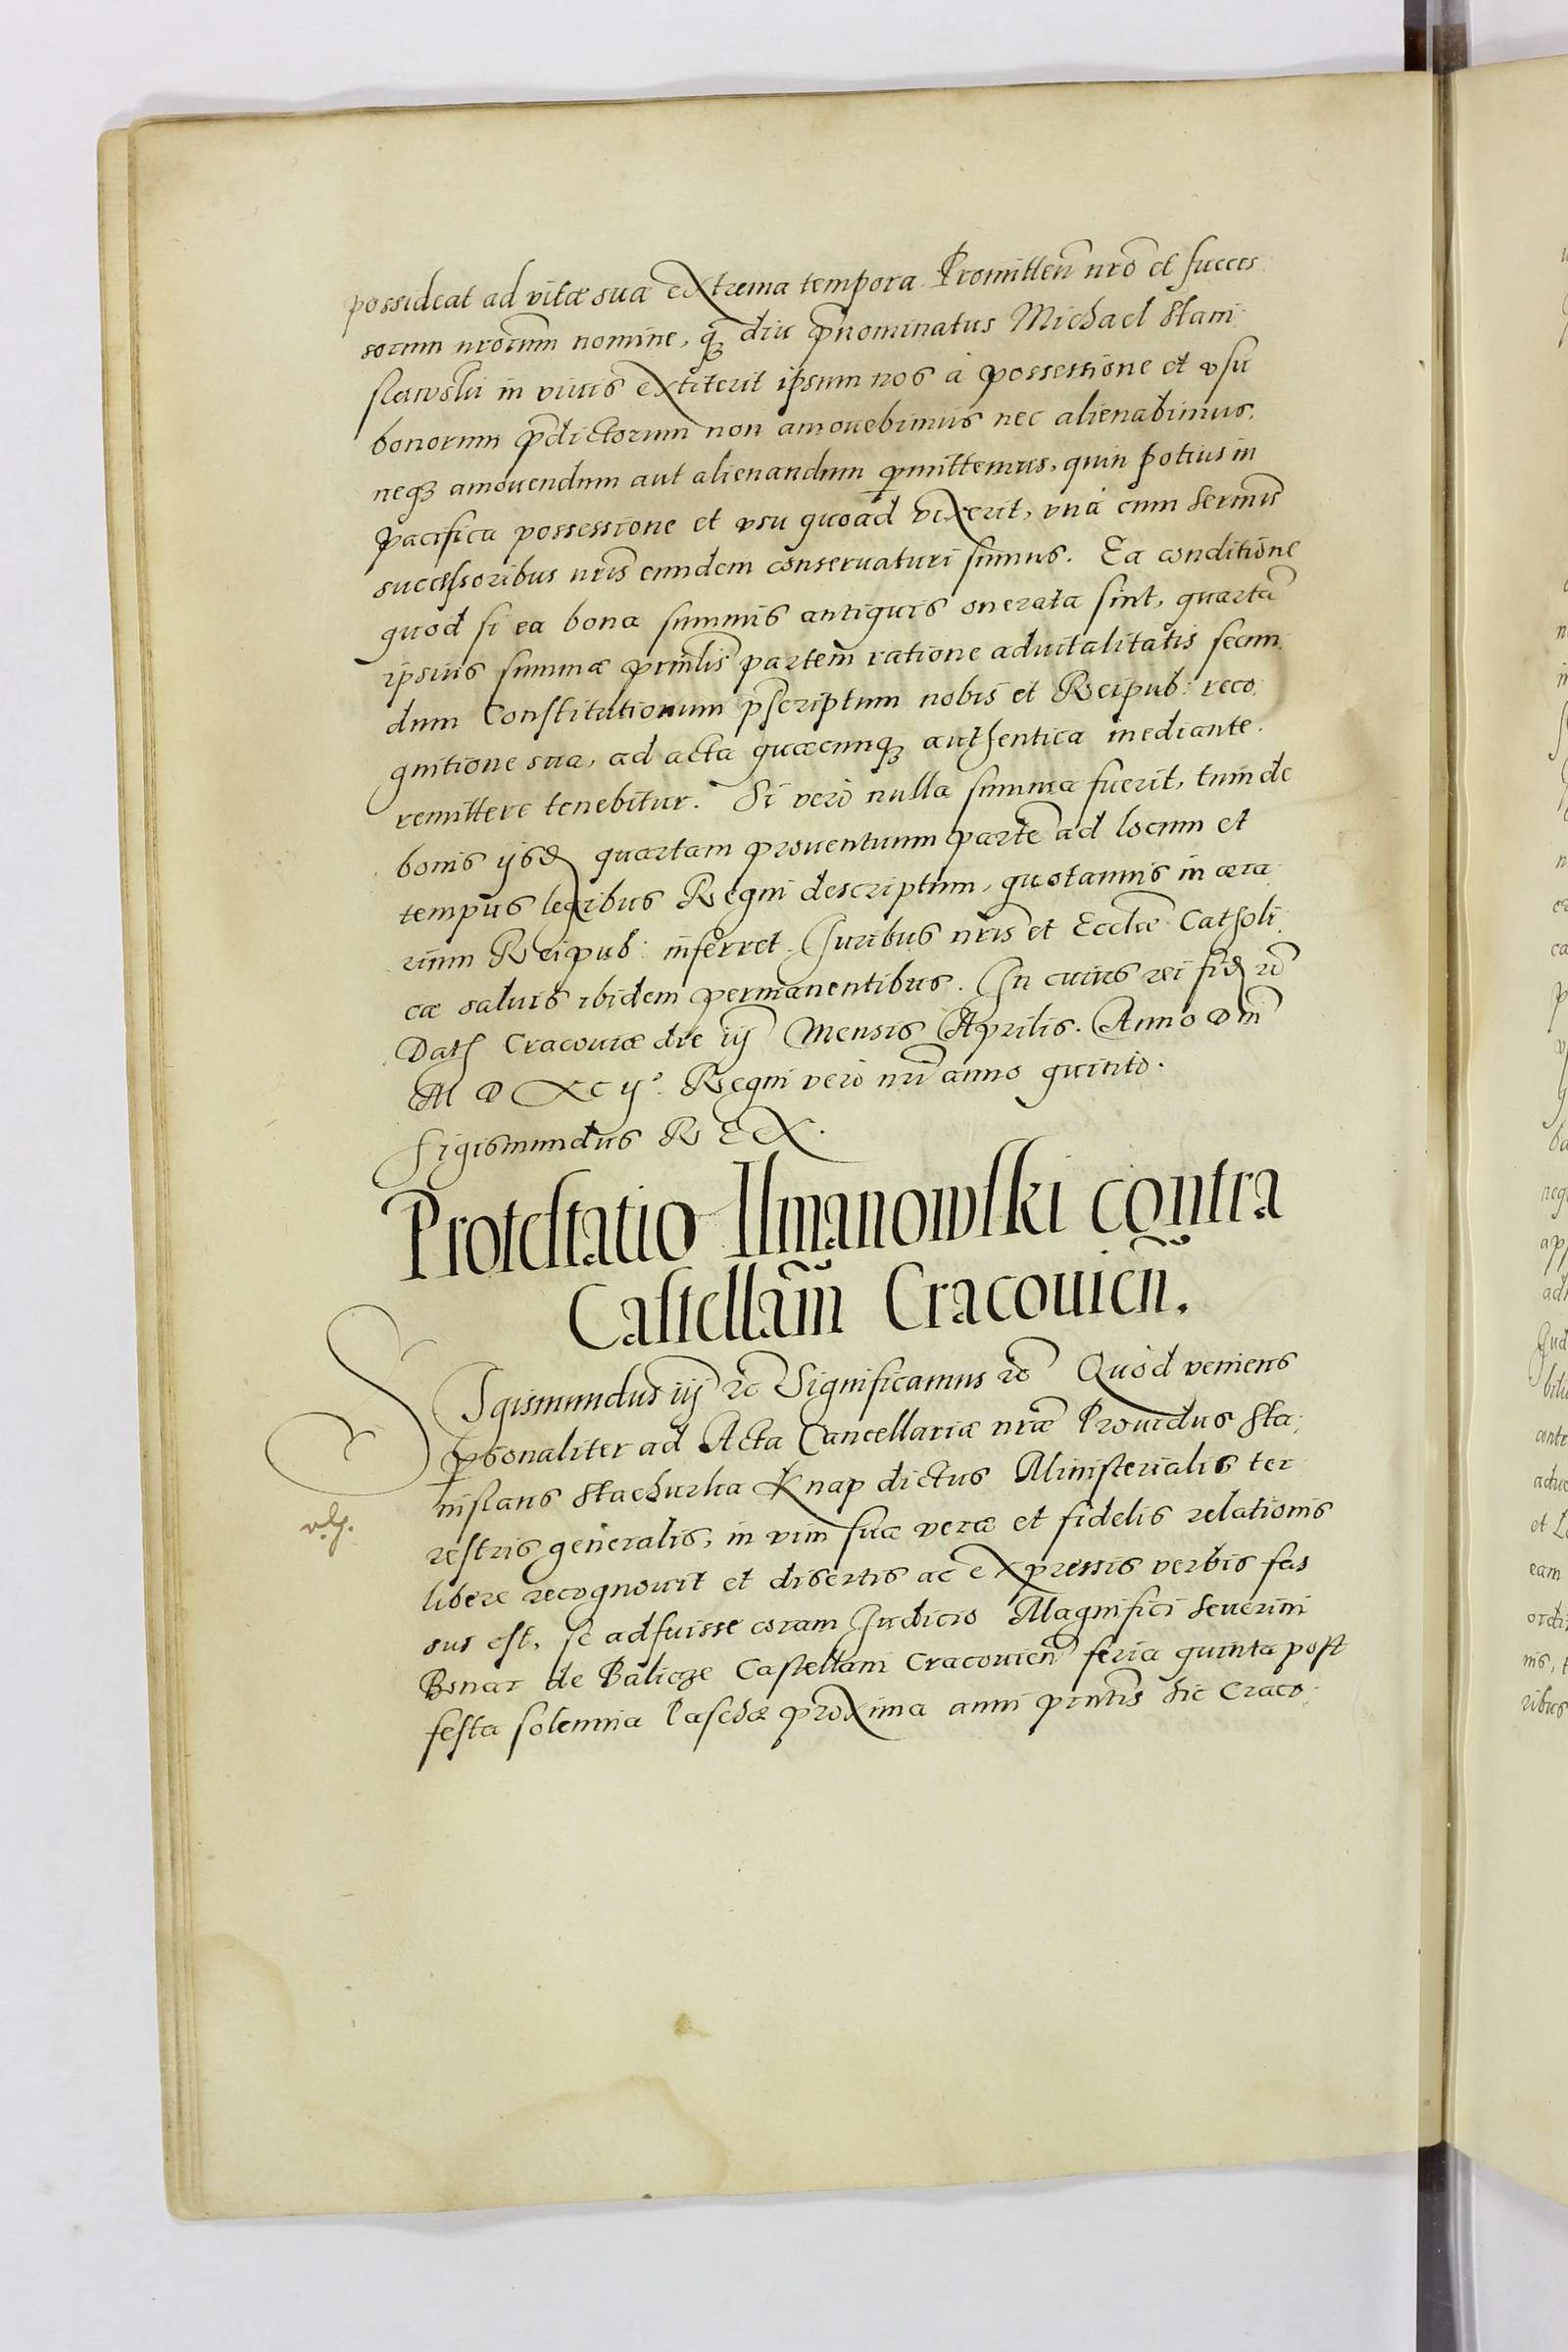 possideat ad vitæ suæ extrema tempora. Promitten̄ nr̄o et succes
sorum nr̄orum nomine, q̃ diu p̄nominatus Michael Stani
slawski in viuis extiterit ipsum nos à possessione et vsu
bonorum p̄dictorum non amouebimus nec alienabimus,
neqꝫ amouendum aut alienandum ꝑmittemus, quin potius in
pacifica possessione et vsu quoad vixerit, vnà cum Serm̄is
successoribus nr̄is eundem conseruaturi sumus. Ea conditione
quod si ea bona summis antiquis onerata sint, quartā
ipsius summæ prin̄lis partem ratione aduitalitatis secun
dum Constitutionum p̄scriptum nobis et Reipub: reco
gnitione sua, ad acta quæcunqꝫ authentica mediante.
remittere tenebitur. Si verò nulla summa fuerit, tum de
bonis ijsd quartam prouentuum partē ad locum et
tempus legibus Regni descriptum, quotannis in æra
rium Reipub: inferret. Iuribus nr̄is et Eccl̄iæ Catholi
cæ saluis ibidem permanentibus. In cuius rei fid rc̄
Dat Cracouiæ die iij Mensis Aprilis. Anno Dn̄i
M D XC ij°. Regni verò nr̄i anno quinto.
Sigismundus REX.
Protestatio Ilmanowski contra
Castellan̄m Cracouien̄.
SIgismundus iij rc̄ Significamus rc̄ Quòd veniens
ꝑsonaliter ad Acta Cancellariæ nr̄æ Prouidus Sta
nislaus Stachurka Knap dictus Ministerialis ter
restris generalis, in vim suæ veræ et fidelis relationis
libere recognouit et disertis ac expressis verbis fas
sus est, se adfuisse coram Iudicio Magnifici Seuerini
Bonar de Balicze Castellani Cracouien̄ feria quinta post
festa solemnia Paschæ proxima anni prn̄tis hic Craco